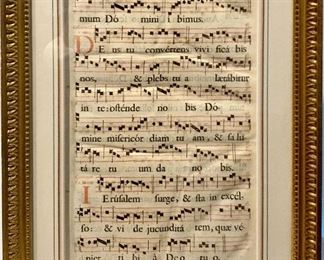 mum Dó mini bimus.
DEus tu convértens vivi ficá bis
nos, & plebs tu a lætábitur
in te: osténde no bis Dó
mine misericór diam tu am, & sa lu
tá re tu um da no bis.
IErúsalem surge, & sta in excél
so: & vi de jucunditá tem, quæ vé
niet ti bi à Deo tuo.